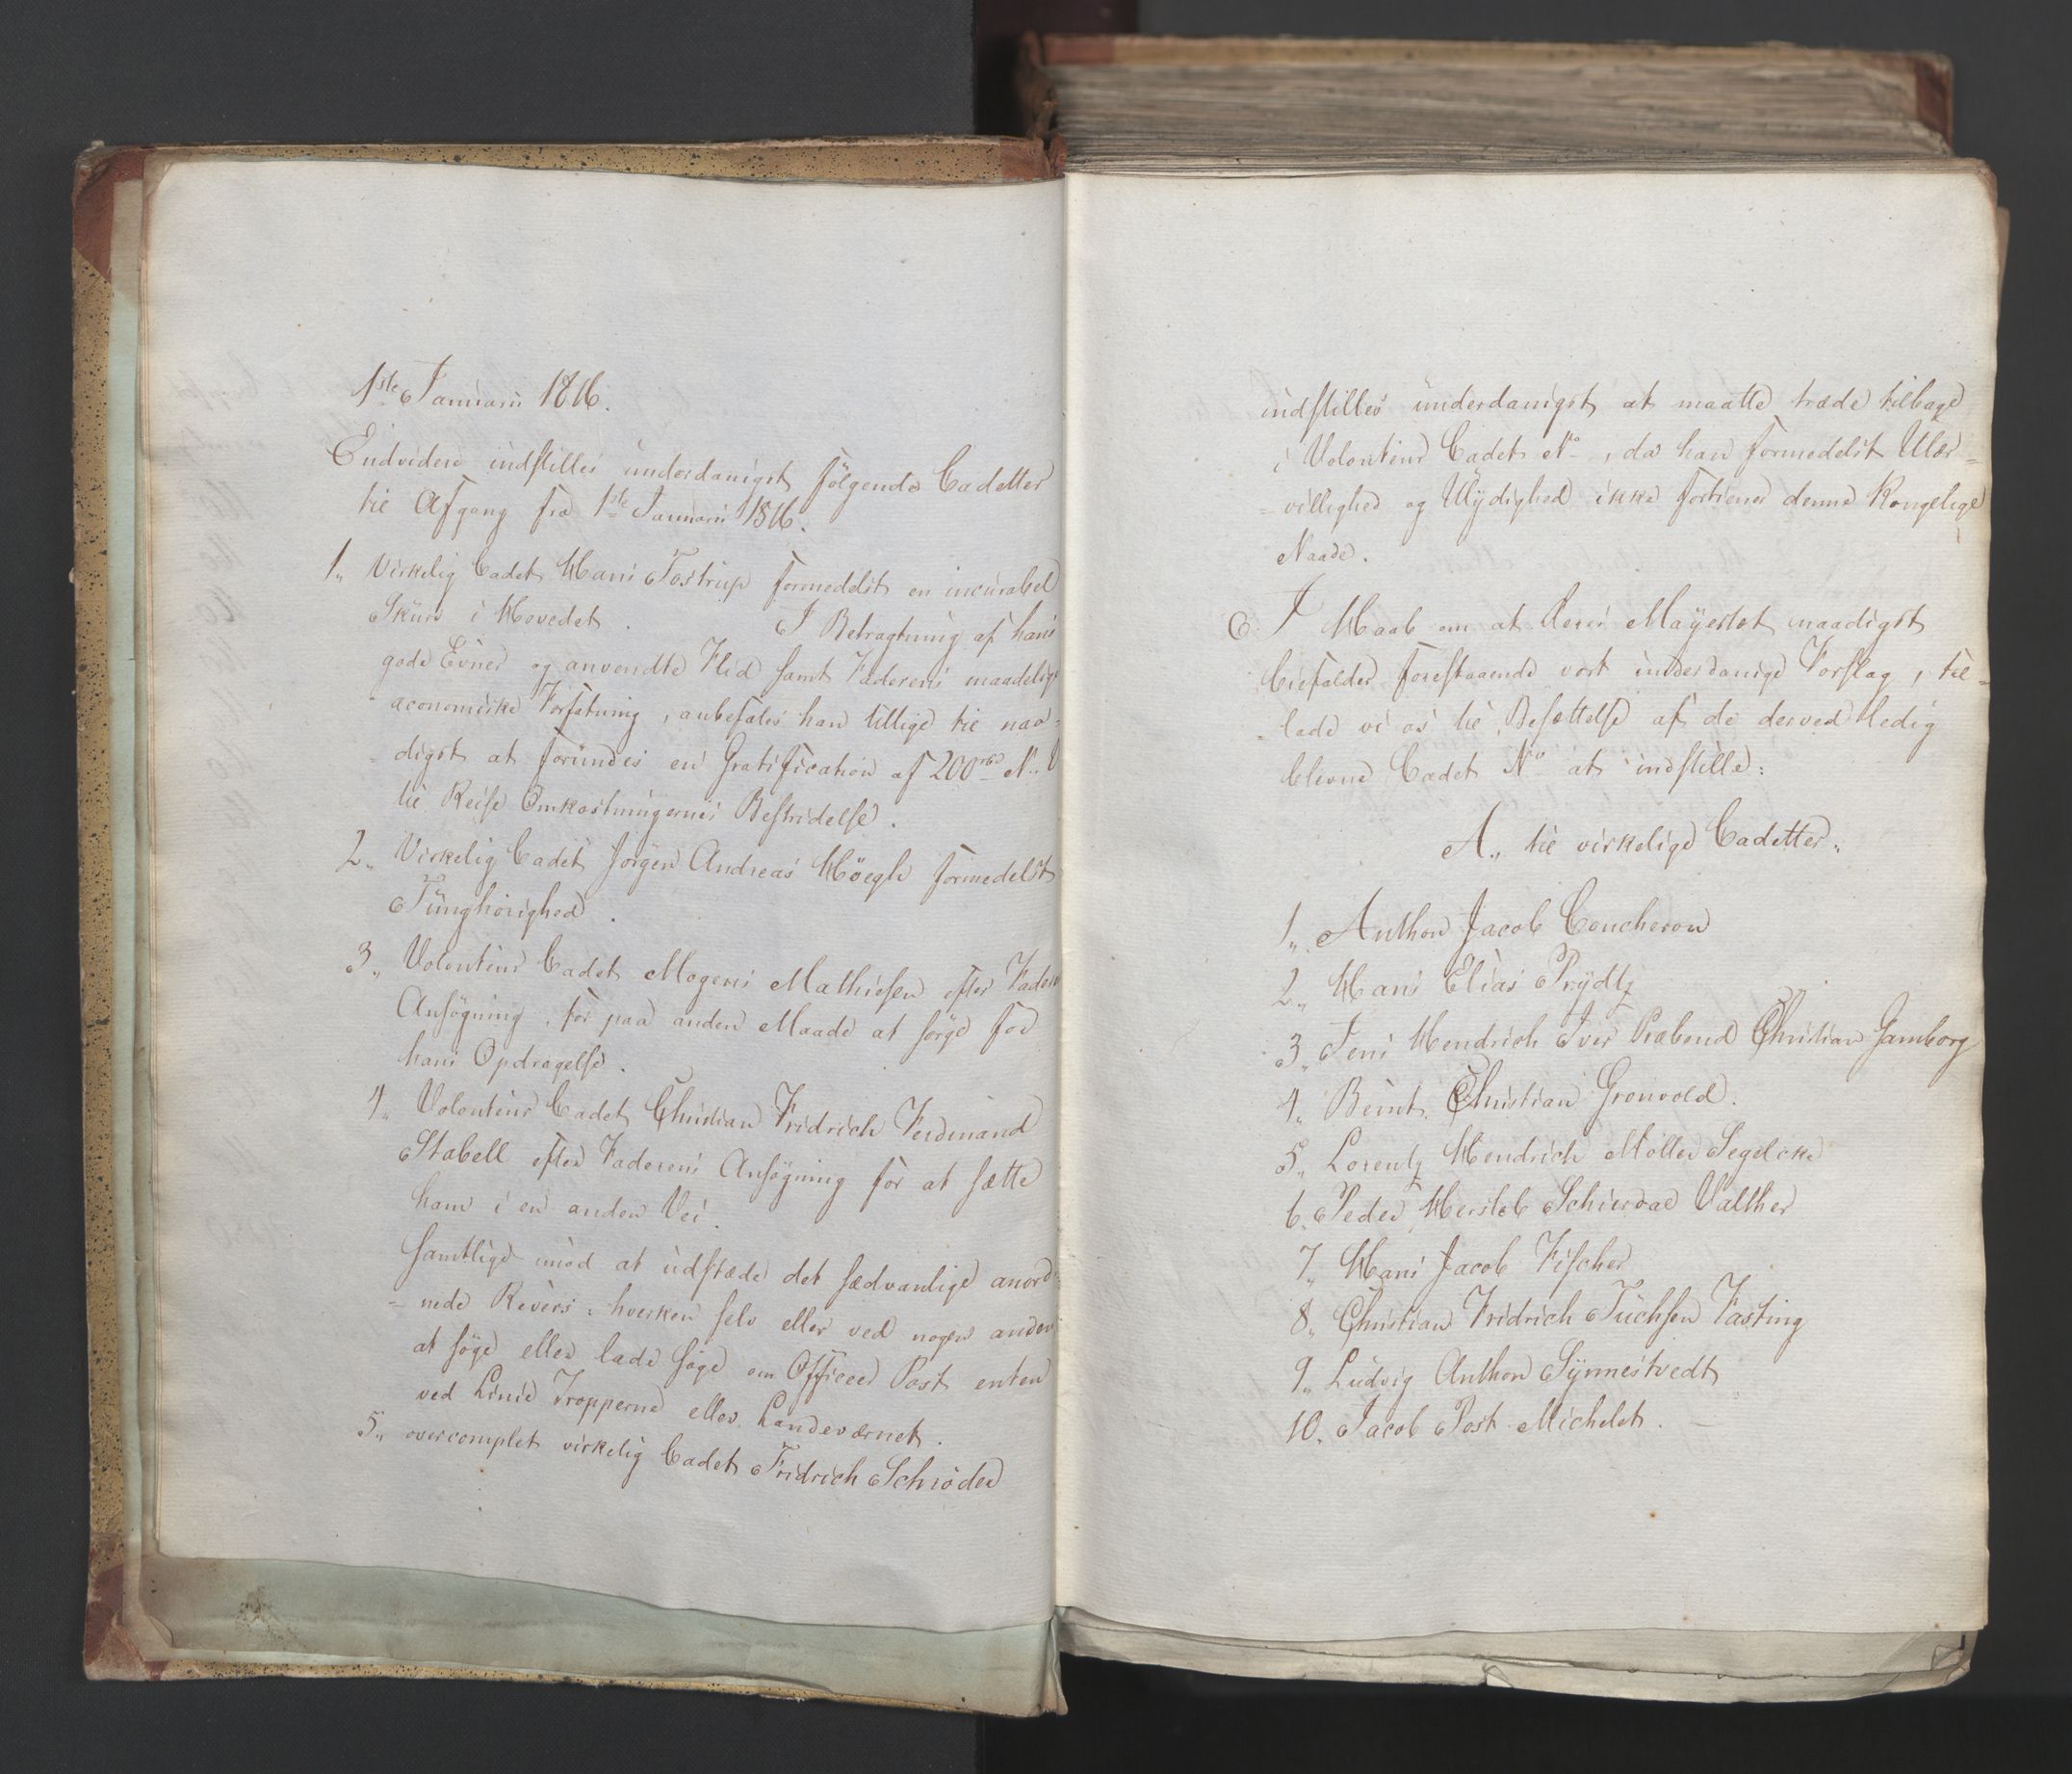 1ste Januarii 1816.
Endvidere indstilles underdanigst følgende Cadetter
til Afgang fra 1ste Januarii 1816.
1,, Virkelig Cadet Hans Tostrup formedelst en incurabel
Skurv i Hovedet. I Betragtning af hans
gode Evner og anvendte Flid samt Faderens maadelige
œconomiske Forfatning, anbefales han tillige til naa=
digst at forundes en Gratification af 200 rbd N. V
til Reise Omkostningernes Bestridelse.
2,, Virkelig Cadet Jørgen Andreas Høegh formedelst
Tunghørighed.
3,, Volonteur Cadet Mogens Mathiesen efter Faderens
Ansøgning, for paa anden Maade at sørge for
hans Opdragelse.
4,, Volonteur Cadet Christian Fridrich Ferdinand
Stabell efter Faderens Ansøgning for at sætte
ham i en anden Vei.
samtlige imod at udstæde det sædvanlige anord=
=nede Revers: hverken selv eller ved nogen anden
at søge eller lade søge om Officeer Post enten
ved Linie Tropperne eller Landeværnet.
5,, overcomplet virkelig Cadet Fridrich Schrøder
indstilles underdanigst at maatte træde tilbage
i Volonteur Cadet No , da han formedelst Ulær=
=villighed og Ulydighed ikke fortiener denne Kongelige
Naade.
C. I Haab om at Deres Mayestet naadigst
bifalder forestaaende vort underdanige Forslag, til=
=lade vi os til Besættelse af de derved ledig
blevne Cadet No at indstille:
A., til virkelige Cadetter.
1,, Anthon Jacob Coucheron
2,, Hans Elias Prydtz
3,, Jens Hendrich Iver Prabend Christian Gamborg
4,, Beint Christian Grønvold.
5,, Lorentz Hendrich Møller Segelcke
6. Peder Hersleb Schierdal Valther
7,, Hans Jacob Fischer
8,, Christian Fridrich Tuchsen Fasting
9,, Ludvig Anthon Synnestvedt
10. Jacob Post Michelet.